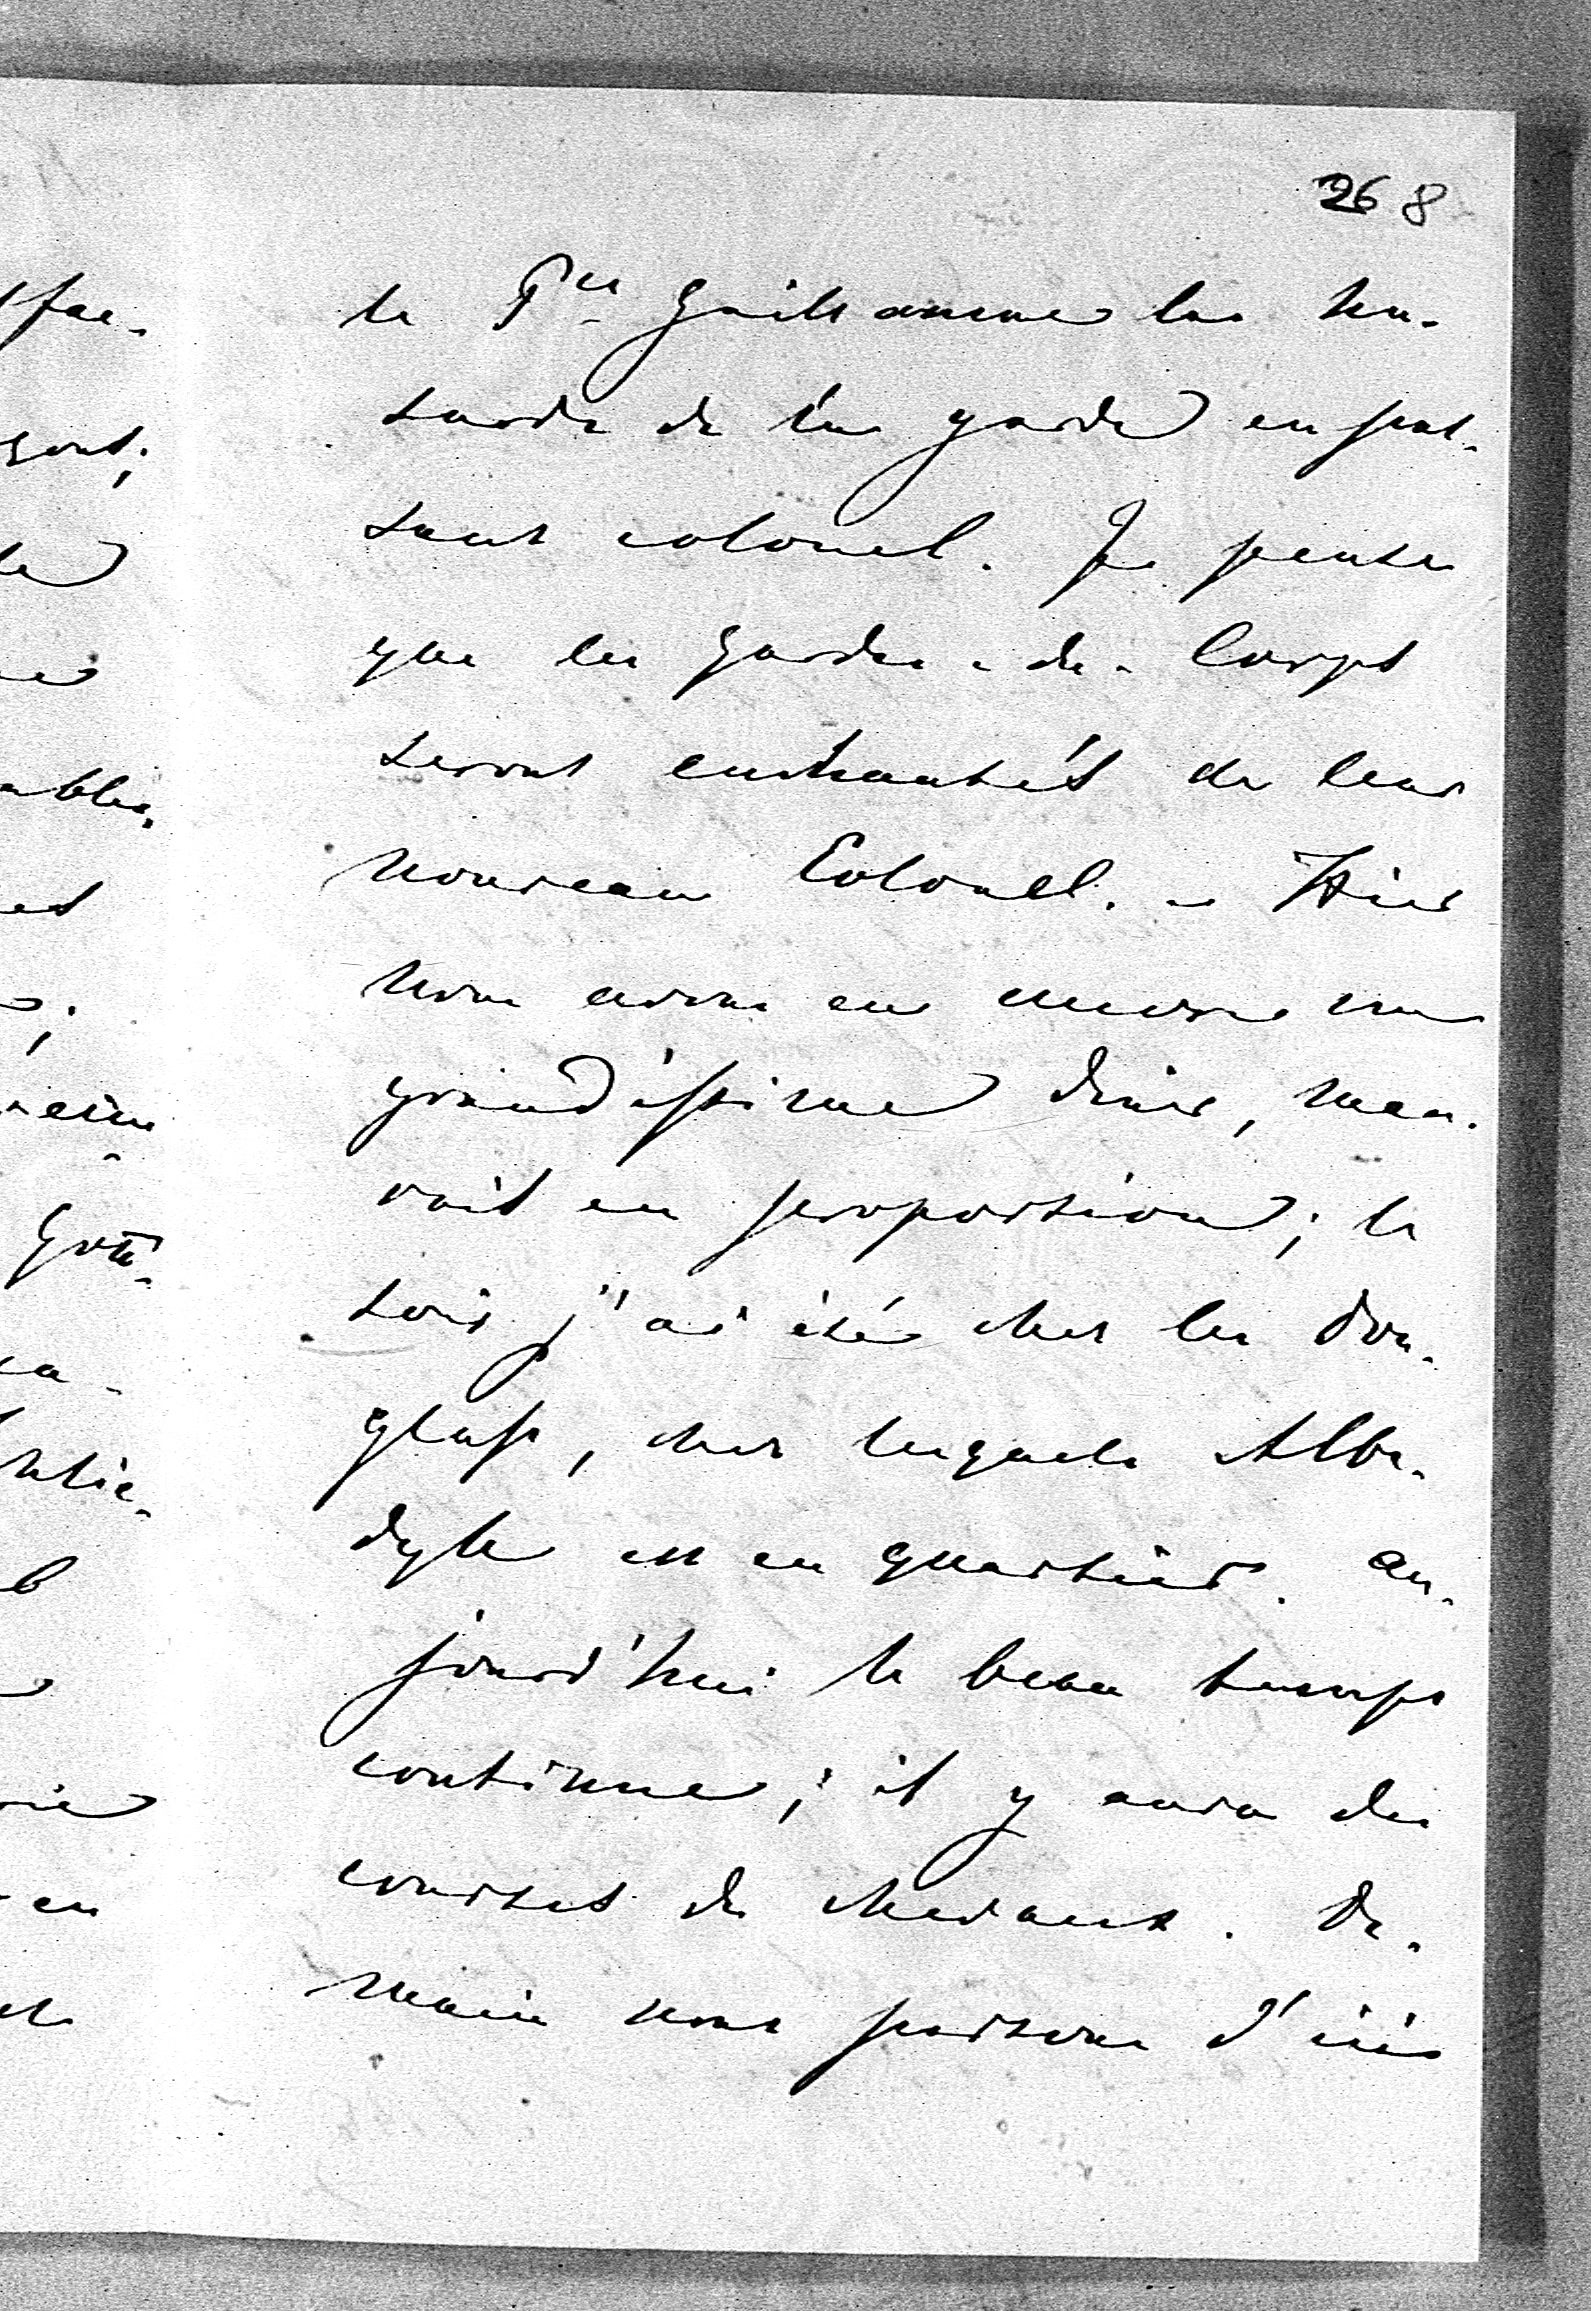 268
le Pce Guillaume les hu-
sards de la garde en fai-
sant colonel. Je pense
que les Gardes-du-Corps
seront enchantés de leur
nouveau Colonel. – Hier
nous avons eu encore un
grandissime diner, mau-
vais en proportion; le
soir j'ai été chez les Dou-
glass, chez lesquels Albe-
dyle est en quartier. Au-
jourd'hui le beau temps
continue; il y aura des
courses de chevaux. De-
main nous partons d'ici